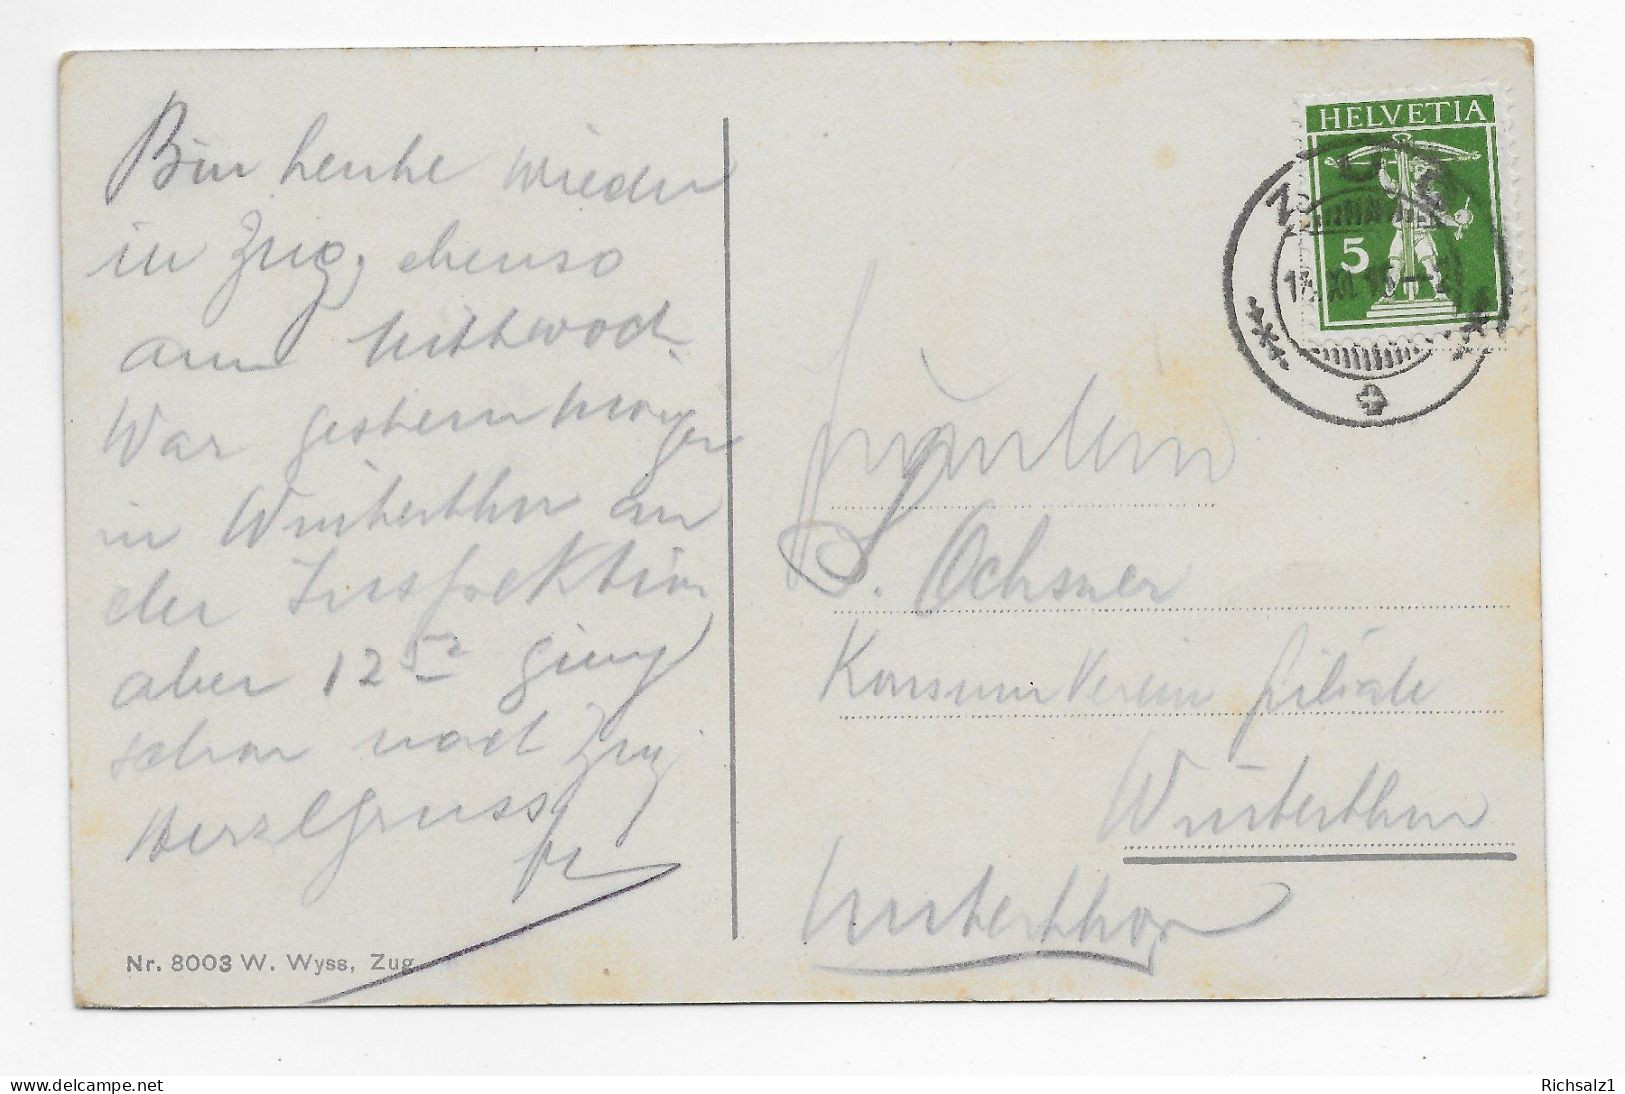 Bin heuhe wieder
in Zug, ebenso
am Mittwoch.
War gestern Morgen
in Winterthur an
der Inspektion
aber 12 52 ging
schon nach Zug
Herzlgruss
HELVETIA
5
ZUG
Fräulein
Ochsner
Konsum Verein Filiale
Winterthur
Winterthur
Nr. 8003 W. Wyss, Zug
www.delcampe.net
Richsalz1